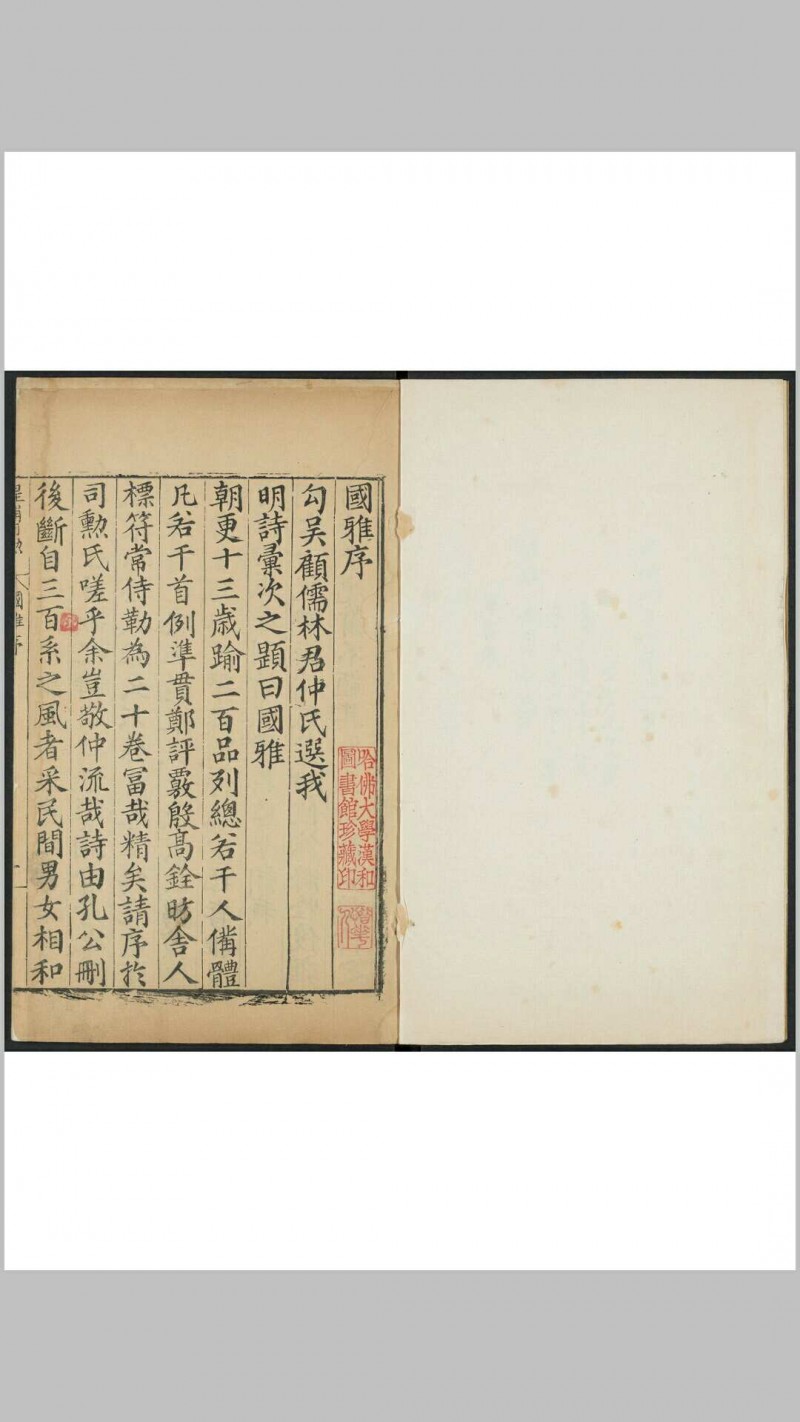 國雅序
勾吴顧儒林君仲氏選我
明詩彙次之題曰國雅
朝更十三歳踰二百品列總若干人備體
凡若干首例準貫鄭評覈殷高銓昉舍人
標符常侍勒為二十卷富哉精矣請序於
司勲氏嗟乎余豈敬仲流哉詩由孔公刪
後斷自三百系之風者采民間男女相和
國雅序
哈佛大學漢和
圖書館珍藏印